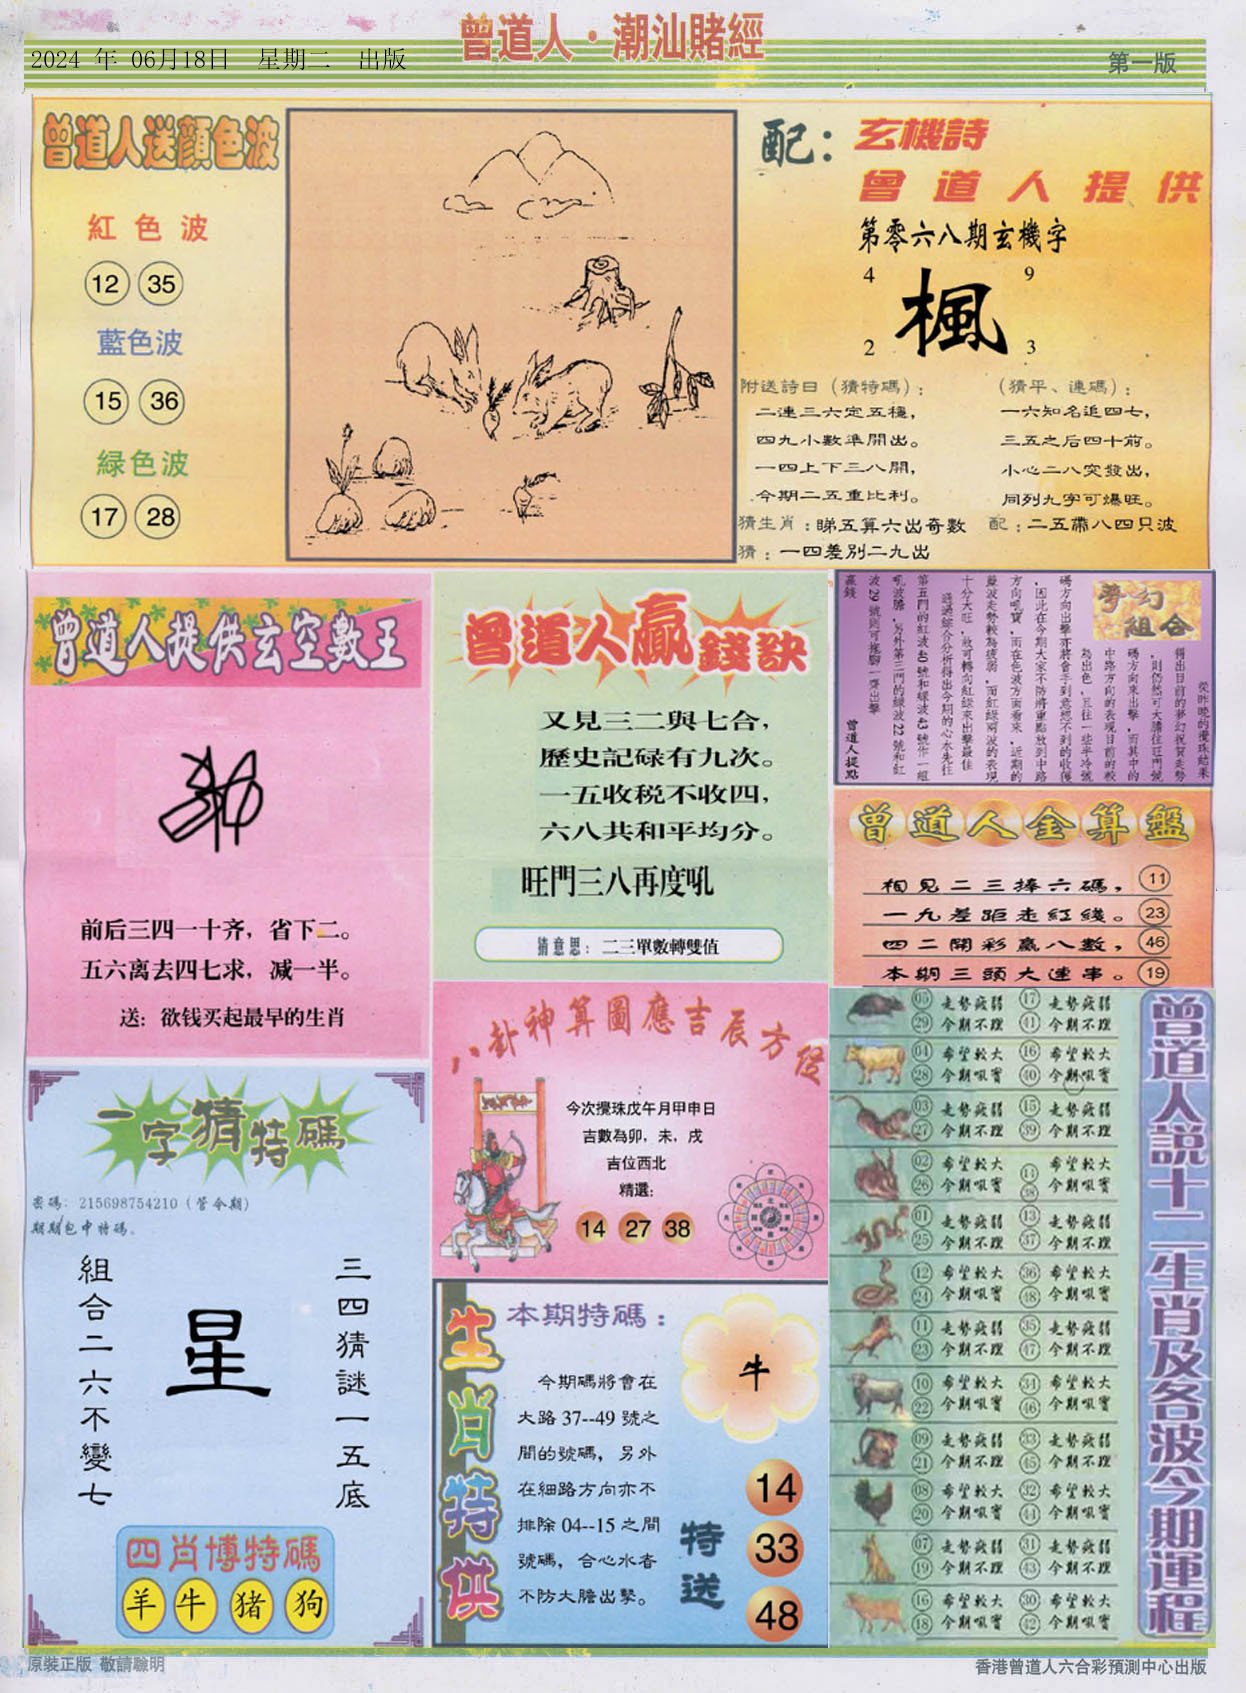 曾道人·潮汕賭經
2024 年 06月18日 星期二 出版
第一版
曾道人送顔色波
紅色波
12 35
藍色波
15 36
緑色波
17 28
配：
玄機詩
曾道人提供
第零六八期玄機字
4 9
楓
2 3
附送詩曰（猜特碼）：
二連三六定五穩，
四九小數準開出。
一四上下三八開，
今期二五重比利。
猜生肖：睇五算六出奇數
猜：一四差別二九出
（猜平、連碼）：
一六知名追四七，
三五之后四十前。
小心二八突發出，
同列九字可爆旺。
配：二五帶八四只波
曾道人提供玄空數王
前后三四一十齐，省下二。
五六离去四七求，减一半。
送：欲钱买起最早的生肖
曾道人贏錢訣
又見三二與七合，
歷史記碌有九次。
一五收税不收四，
六八共和平均分。
旺門三八再度吼
猜意思：二三單數轉雙值
夢幻組合
從昨晚的攪珠結果
得出目前的夢幻祝賀走勢
，則仍然可大膽往旺門號
碼方向來出擊，而其中的
中路方向的表現目前的較
為出色，且往一些半冷號
碼方向出擊亦將會手到意想不到的收獲
，因此在今期大家不防將重點放到中路
方向吼實，而在色波方面看來，近期的
藍波走勢較為疲弱，而紅綠兩波的表現
十分大旺，故可轉向紅綠來出擊最佳
通過綜合分析得出今期的心水先往
第五門的紅波40號和綠波43號作一組
吼波膽，另外第三門的綠波22號和紅
波29號則可拖腳一齊出擊
贏錢
曾道人提點
曾道人金算盤
相見二三捧六碼， 11
一九差距走紅綫。 23
四二開彩贏八數， 46
本期三頭大連串。 19
一字猜特碼
密碼：215698754210（管令期）
期期包中特碼。
三四猜謎一五底
星
組合二六不變七
四肖博特碼
羊 牛 猪 狗
八卦神算圖應吉辰方位
今次攪珠戊午月甲申日
吉數為卯，未，戌
吉位西北
精選：
14 27 38
生肖特供
本期特碼：
今期碼將會在
大路37--49號之
間的號碼，另外
在細路方向亦不
排除04--15之間
號碼，合心水者
不防大膽出擊。
牛
特送
14
33
48
曾道人説十二生肖及各波今期運程
05 走勢疲弱 17 走勢疲弱
29 今期不理 41 今期不理
04 希望較大 16 希望較大
28 今期吼實 40 今期吼實
03 走勢疲弱 15 走勢疲弱
27 今期不理 39 今期不理
02 希望較大 14 希望較大
26 今期吼實 38 今期吼實
01 走勢疲弱 13 走勢疲弱
25 今期不理 37 今期不理
12 希望較大 36 希望較大
24 今期吼實 48 今期吼實
11 走勢疲弱 35 走勢疲弱
23 今期不理 47 今期不理
10 希望較大 34 希望較大
22 今期吼實 46 今期吼實
09 走勢疲弱 33 走勢疲弱
21 今期不理 45 今期不理
08 希望較大 32 希望較大
20 今期吼實 44 今期吼實
07 走勢疲弱 31 走勢疲弱
19 今期不理 43 今期不理
16 希望較大 30 希望較大
18 今期吼實 42 今期吼實
原裝正版 敬請聯明
香港曾道人六合彩預測中心出版